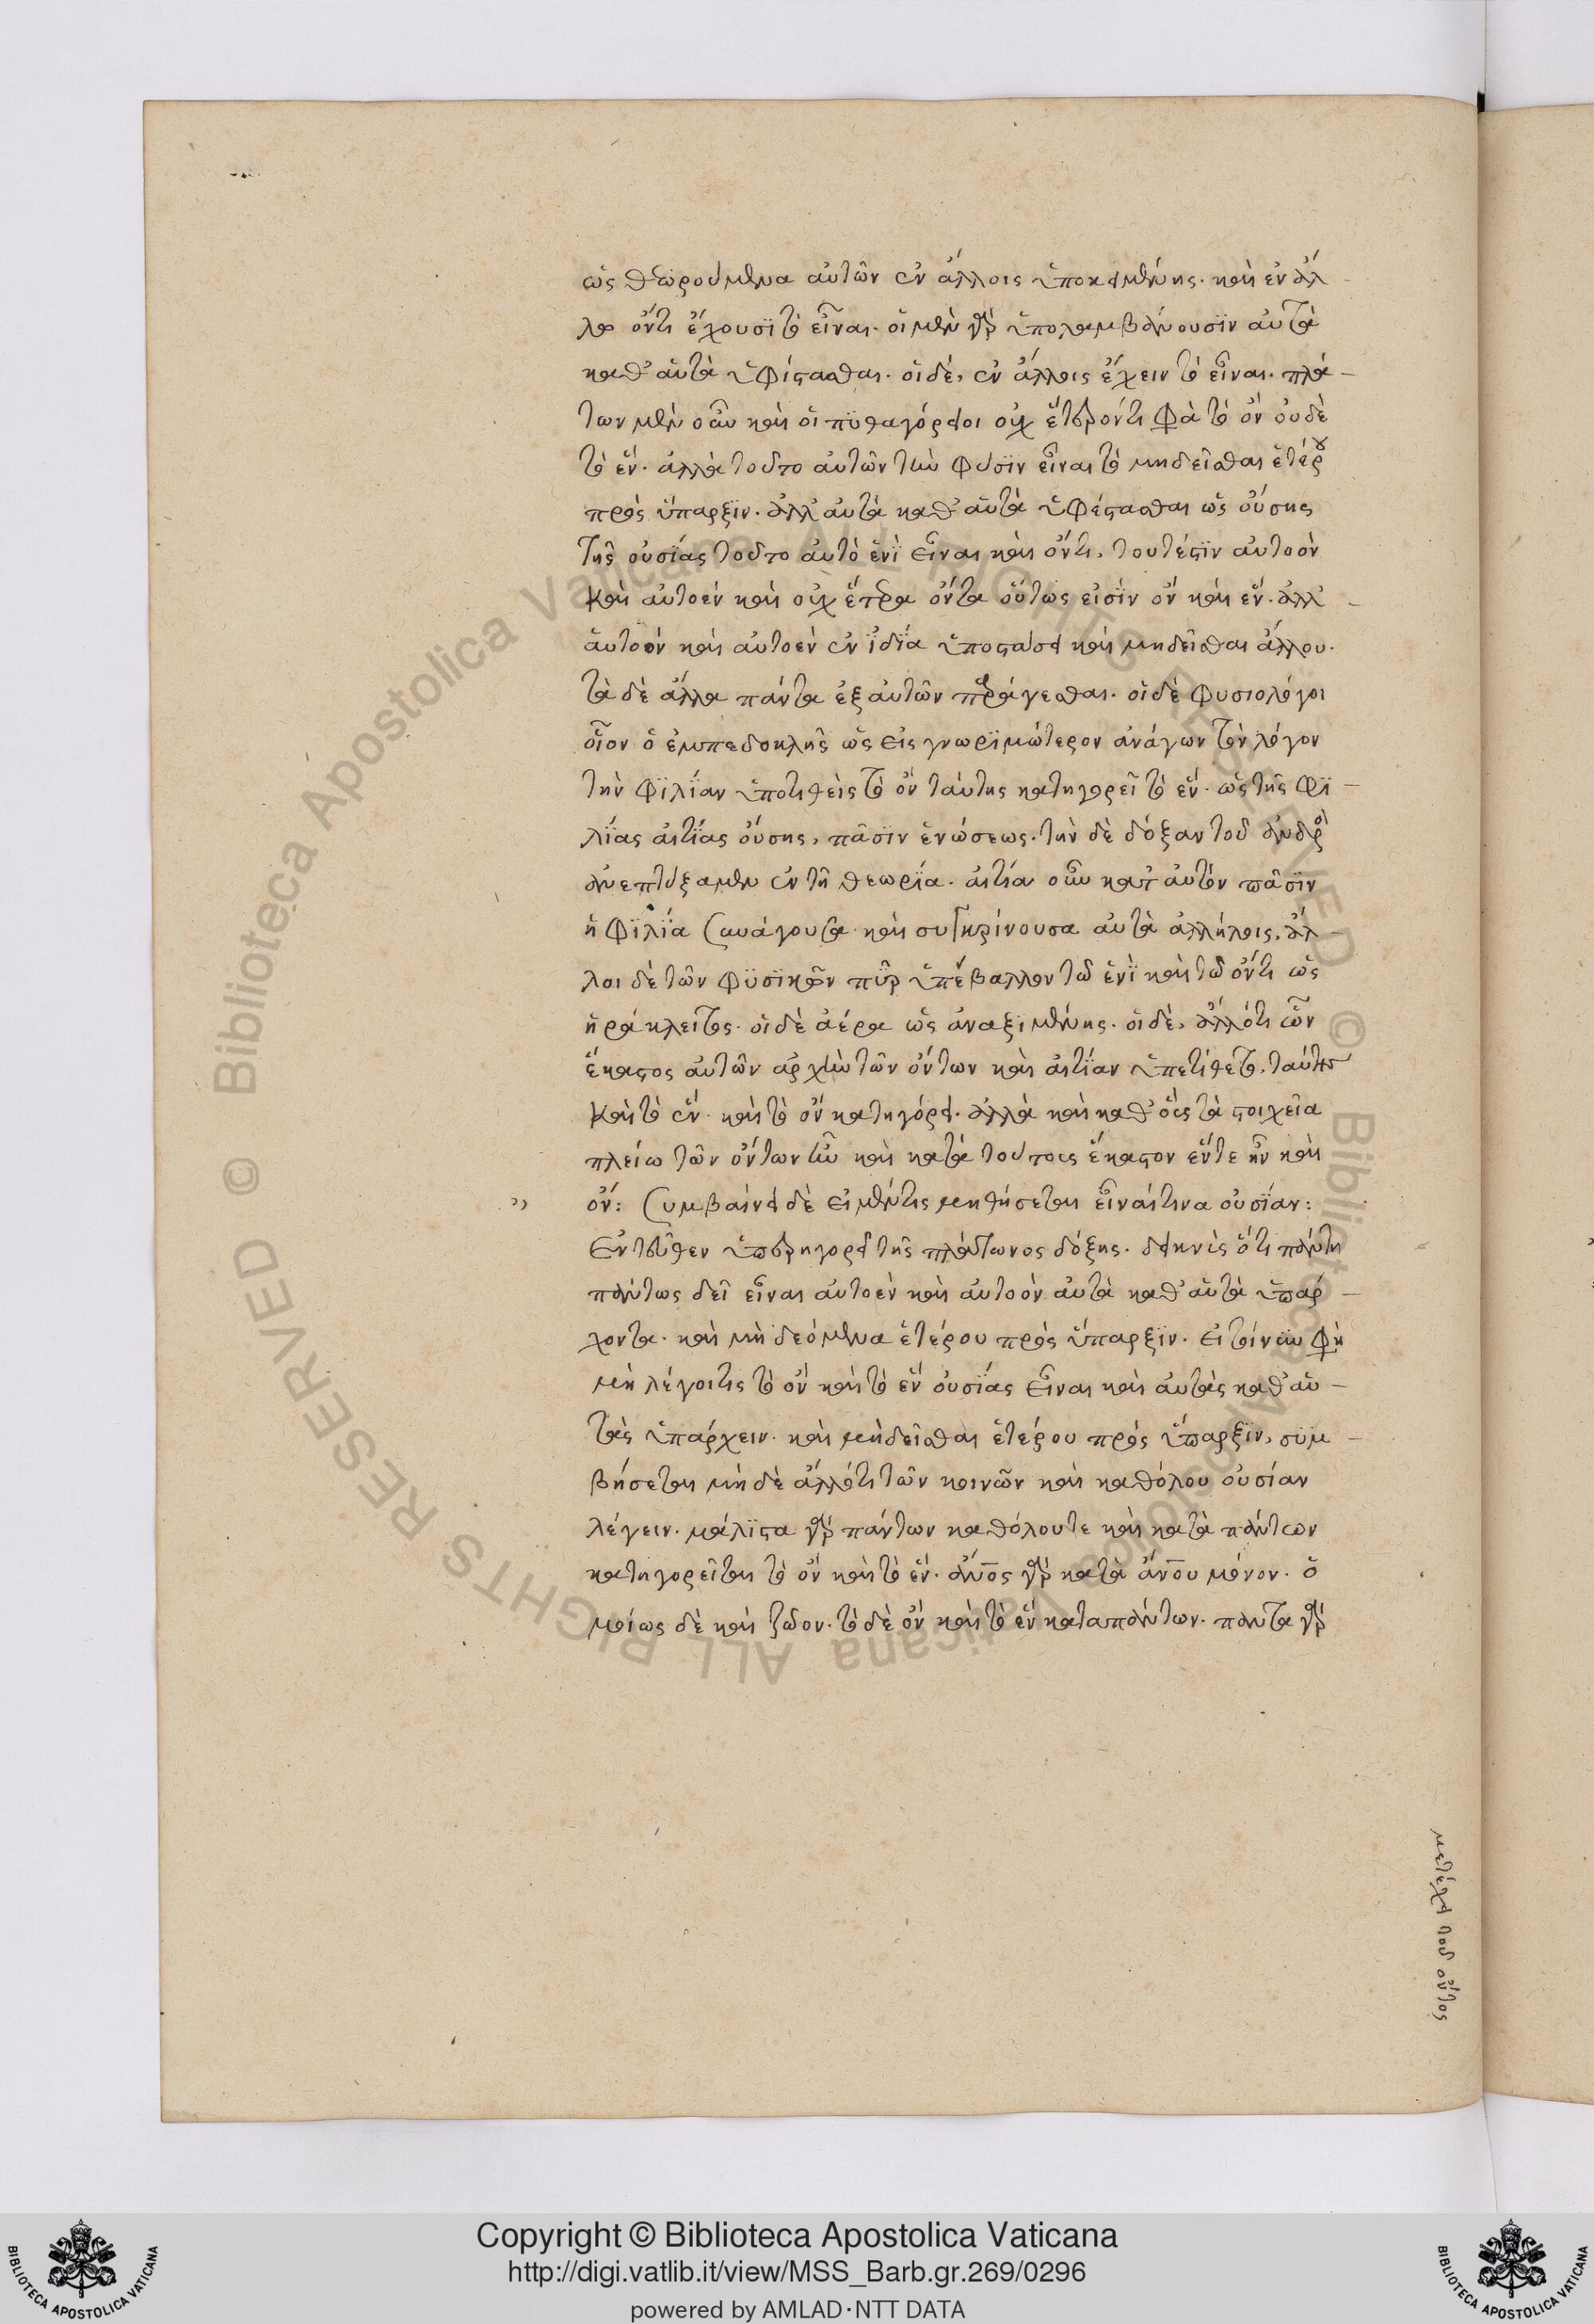 ὡς θεωρούμενα αὐτῶν ἐν ἄλλοις ὑποκειμένης. καὶ ἐν ἄλ-
λῳ ὄντι ἔχουσϊ τὸ εἶναι. οἱ μὲν γὰρ ὑπολαμβάνουσϊν αὐτὰ
καθ' αὑτὰ ὑφίστασθαι. οἱ δὲ, ἐν ἄλλοις ἔχειν τὸ εἶναι. πλά-
των μὲν οὖν καὶ οἱ πϋθαγόρειοι οὐχ ἕτερόν τι φασὶ τὸ ὂν οὐδὲ
τὸ ἕν. ἀλλὰ τοῦτο αὐτῶν τὴν φύσϊν εἶναι τὸ μὴ δεῖσθαι ἑτέρου
πρὸς ὕπαρξϊν. ἀλλ' αὐτὰ καθ' αὑτὰ ὑφέστασθαι ὡς οὔσης
τῆς οὐσίας τοῦτο αὐτὸ ἑνϊ εἶναι καὶ ὄντι, τουτέστϊν αὐτοὸν
καὶ αὐτοὲν καὶ οὐχ ἕτερα ὄντα οὕτως εἰσϊν ὂν καὶ ἕν. ἀλλ' -
αὐτοὸν καὶ αὐτοὲν ἐν ϊδίᾳ ὑποστάσει καὶ μὴ δεῖσθαι ἄλλου.
τὰ δὲ ἄλλα πάντα ἐξ αὐτῶν παράγεσθαι. οἱ δὲ φυσιολόγοι
οἷον ὁ ἐμπεδοκλῆς ὡς εἰς γνωρϊμώτερον ἀνάγων τὸν λόγον
τὴν φϊλίαν ὑποτιθεὶς τὸ ὂν ταύτης κατηγορεῖ τὸ ἕν. ὡς τῆς φϊ-
λίας αἰτίας οὔσης, πᾶσϊν ἑνώσεως. τὴν δὲ δόξαν τοῦ ἀνδρὸς
ἀνεπτύξαμεν ἐν τῇ θεωρίᾳ. αἰτία οὖν κατ' αὐτὸν πᾶσϊν
ἡ φϊλία συνάγουσα καὶ συγκρίνουσα αὐτὰ ἀλλήλοις. ἄλ-
λοι δὲ τῶν φϋσϊκῶν πῦρ ὑπέβαλλον τῷ ἑνϊ καὶ τῷ ὄντι ὡς
ἡράκλειτος. οἱ δὲ ἀέρα ὡς ἀναξιμένης. οἱ δὲ, ἄλλό τι ὧν
ἕκαστος αὐτῶν ἀρχὴν τῶν ὄντων καὶ αἰτίαν ὑπετίθετο. ταύτης
καὶ τὸ ἓν καὶ τὸ ὂν κατηγόρει. ἀλλὰ καὶ καθ' οὓς τὰ στοιχεῖα
πλείω τῶν ὄντων ἦν καὶ κατὰ τούτους ἕκαστον ἕν τε ἦν καὶ
ὄν: Συμβαίνει δὲ εἰ μέν τις μὴ θήσεται εἶναί τινα οὐσίαν:
Ἐντεῦθεν ὑπερηγορεῖ τῆς πλάτωνος δόξης. δεικνὺς ὅτι πάντη
πάντως δεῖ εἶναι αὐτοὲν καὶ αὐτοὸν αὐτὰ καθ' αὑτὰ ὑπάρ-
χοντα. καὶ μὴ δεόμενα ἑτέρου πρὸς ὕπαρξϊν. εἰ τοίνυν φη
μὴ λέγοι τις τὸ ὂν καὶ τὸ ἓν οὐσίας εἶναι καὶ αὐτὰς καθ' αὑ-
τὰς ὑπάρχειν. καὶ μὴ δεῖσθαι ἑτέρου πρὸς ὕπαρξϊν, συμ-
βήσεται μὴ δὲ ἄλλό τι τῶν κοινῶν καὶ καθόλου οὐσίαν
λέγειν. μάλϊστα γὰρ πάντων καθόλου τε καὶ κατὰ πάντων
κατηγορεῖται τὸ ὂν καὶ τὸ ἕν. ἄνος γὰρ κατὰ ἄνου μόνον. ὁ
μοίως δὲ καὶ ζῶον. τὸ δὲ ὂν καὶ τὸ ἓν κατὰ πάντων. πάντα γὰρ
μετέχει τοῦ ὄντος
Copyright © Biblioteca Apostolica Vaticana
http://digi.vatlib.it/view/MSS_Barb.gr.269/0296
powered by AMLAD·NTT DATA
BIBLIOTECA APOSTOLICA VATICANA
BIBLIOTECA APOSTOLICA VATICANA
© Biblioteca Apostolica Vaticana ALL RIGHTS RESERVED © Biblioteca Apostolica Vaticana ALL RIGHTS RESERVED